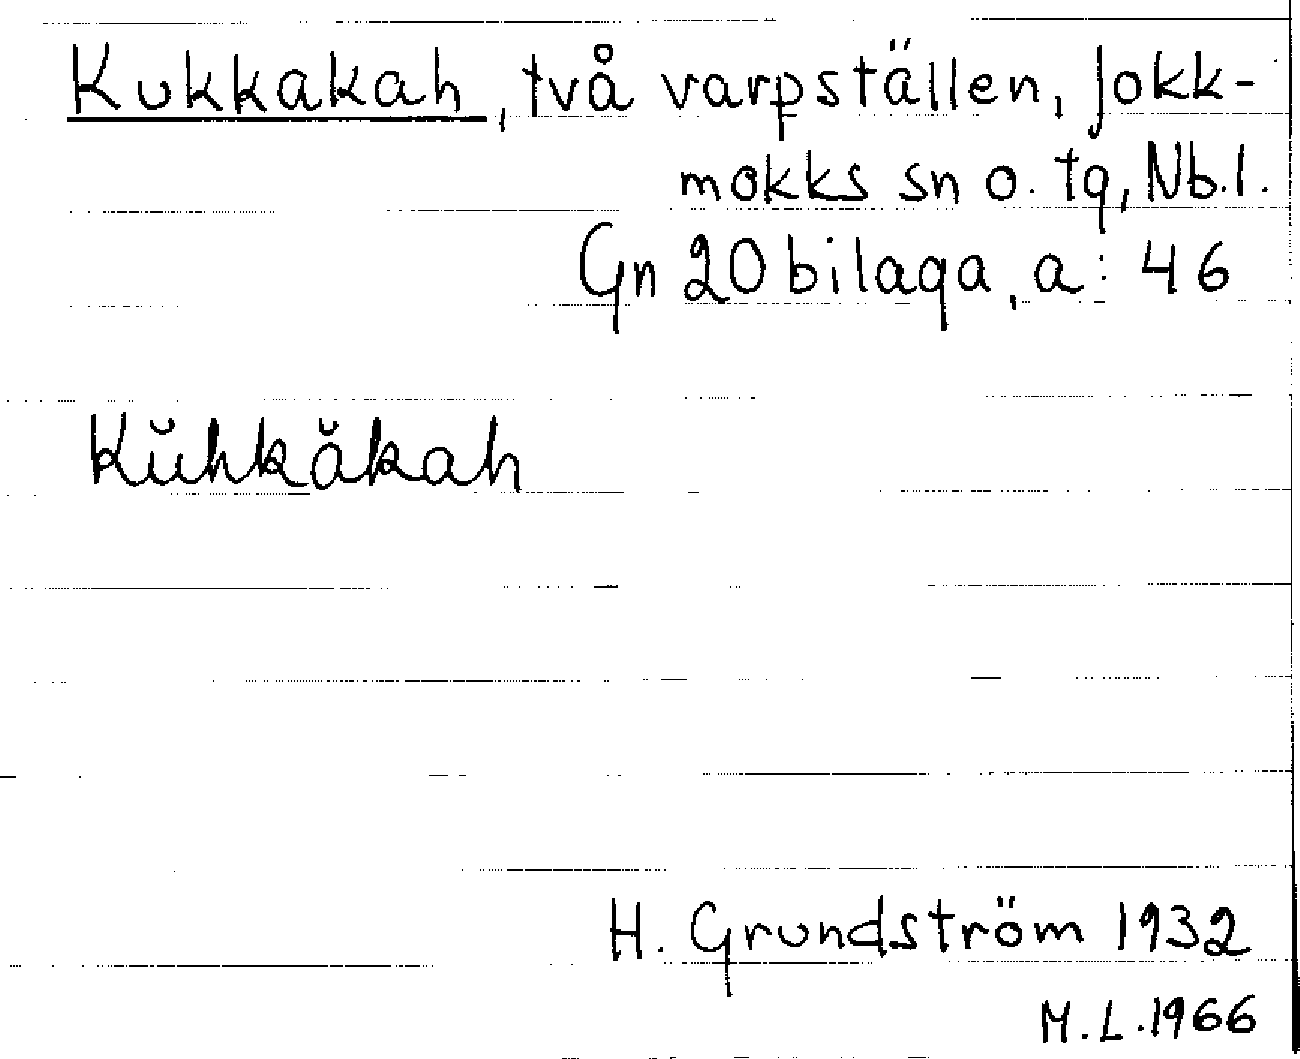 Kukkakah, två varpställen, Jokk-
mokks sn o. tg, Nb.l.
Gn 20 bilaga, a: 46
Kŭhkăkah
H. Grundström 1932
M.L. 1966